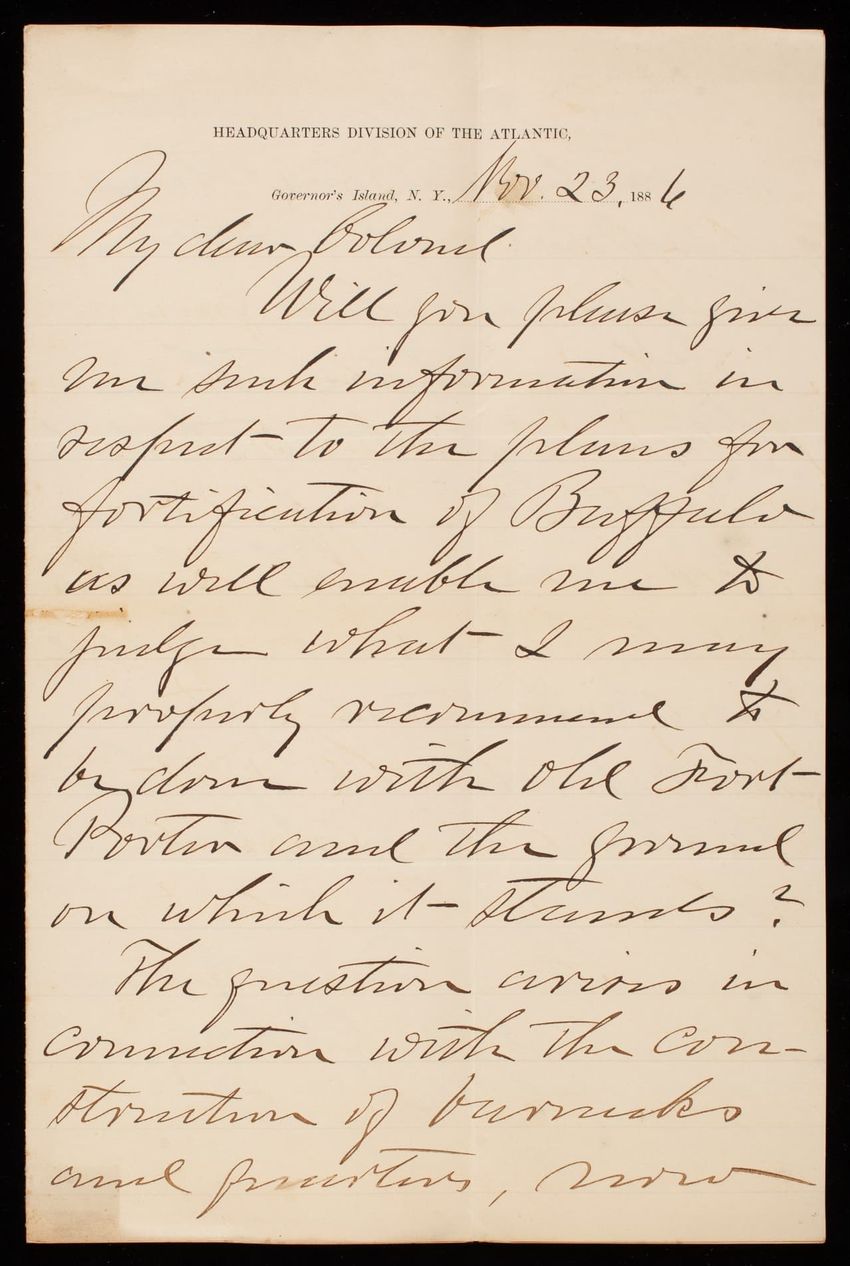 HEADQUARTERS DIVISION OF THE ATLANTIC,
Governor's Island, N. Y., Nov. 23, 1886
My dear Colonel
Will you please give
me such information in
respect to the plans for
fortification of Buffalo
as will enable me to
judge what I may
properly recommend to
be done with old Fort
Porter and the ground
on which it stands?
The question arises in
connection with the con-
struction of barracks
and quarters, now